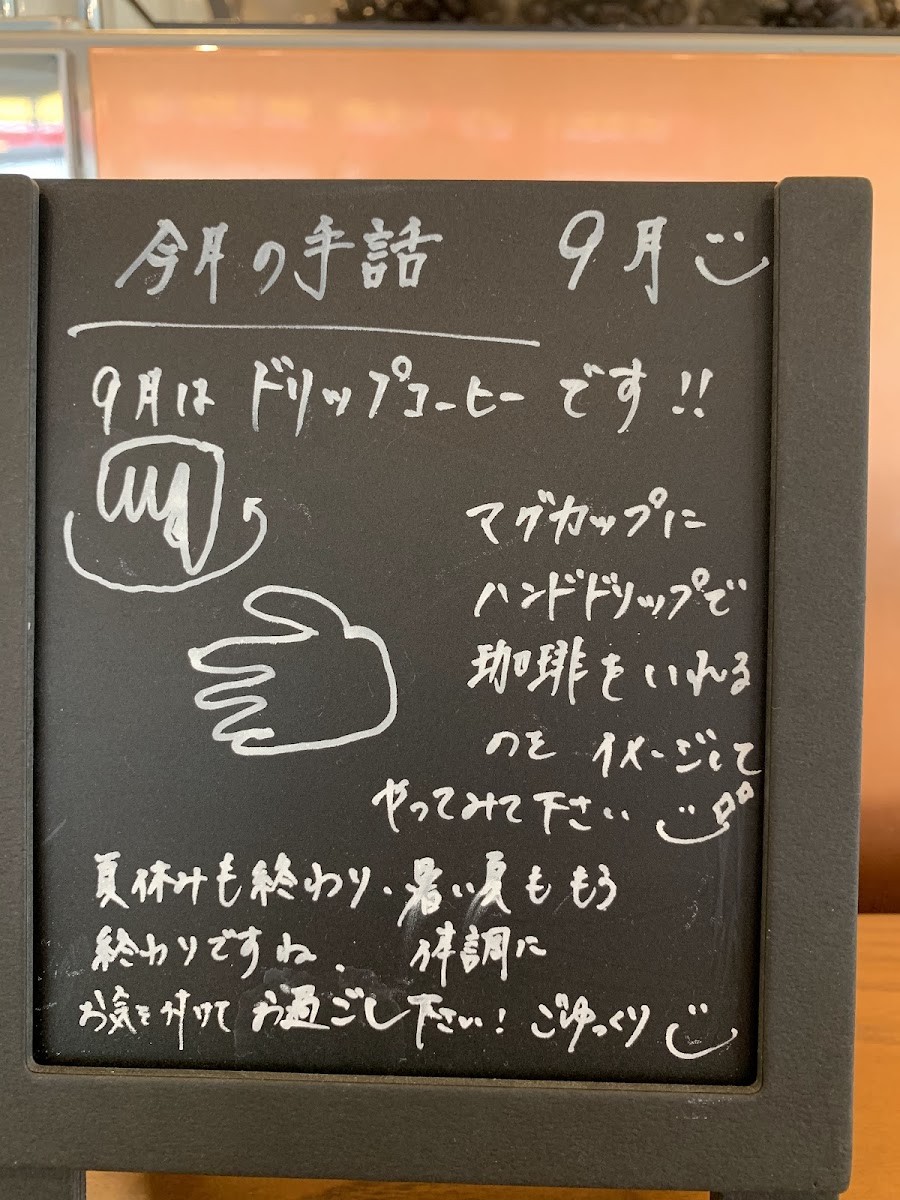 今月の手話 9月
9月は ドリップコーヒー です!!
マグカップに
ハンドドリップで
珈琲をいれる
のを イメージして
やってみて下さい
夏休みも終わり、暑い夏ももう
終わりですね、 体調に
お気を付けて お過ごし下さい! ごゆっくり